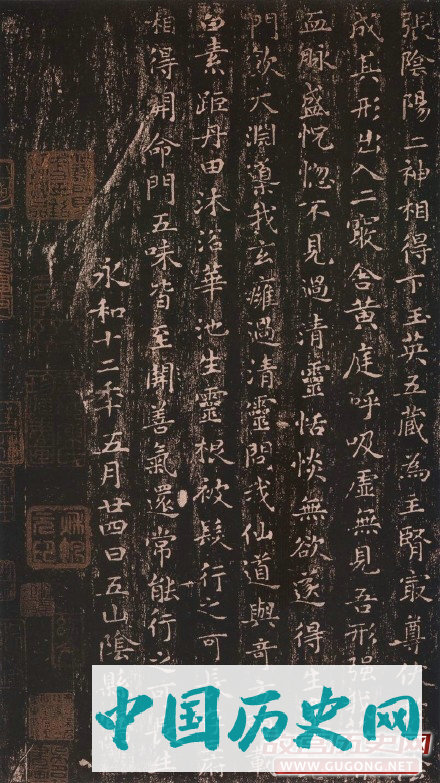 張陰陽二神相得下玉英五藏為主腎最尊伏
成其形出入二竅舍黃庭呼吸虛無見吾形强我
血脉盛恍惚不見過清靈恬惔無欲遂得生
門飲大淵導我玄癰過清靈問我仙道與奇方
白素距丹田沐浴華池生靈根被髮行之可長
相得開命門五味皆至開善氣還常能行之可
永和十二年五月廿四日五山陰縣
中国历史网
WWW.GUGONG.NET